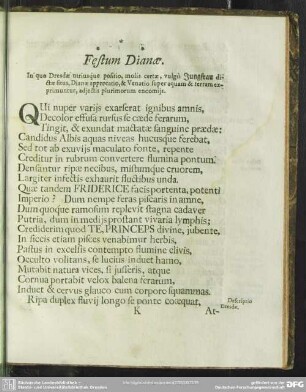 Festum Dianæ.
In quo Dresdæ utriusque positio, molis certæ, vulgò Jungfrau di-
ctæ situs, Dianæ apprecatio, & Venatio super aquam & terram ex-
primuntur, adjectis plurimorum encomijs.
QUi nuper varijs exarserat ignibus amnis,
Decolor effusa rursus se cæde ferarum,
Tingit, & exundat mactatæ sanguine prædæ;
Candidus Albis aquas niveas hucusque ferebat,
Sed tot ab exuvijs maculato fonte, repente
Creditur in rubrum convertere flumina pontum.
Densantur ripæ necibus, mistumque cruorem,
Largiter infectis exhaurit fluctibus unda.
Quæ tandem FRIDERICE facis portenta, potenti
Imperio? Dum nempe feras piscaris in amne,
Dum quoque ramosum replevit stagna cadaver
Putria, dum in medijs prostant vivaria lymphis;
Crediderim quod TE, PRINCEPS divine, jubente,
In siccis etiam pisces venabimur herbis,
Pastus in excelsis contempto flumine clivis,
Occulto volitans, se lucius induet hamo,
Mutabit natura vices, si jusseris, atque
Cornua portabit velox balena ferarum,
Induet & cervus glauco cum corpore squammas.
Ripa duplex fluvij longo se ponte coæquat,
Descriptio
Dresdæ.
K
At-